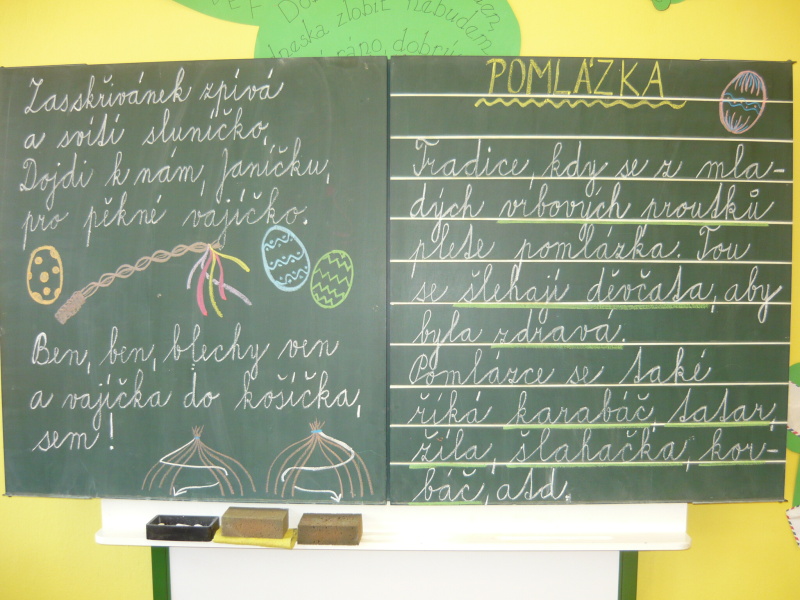 Dnes
dneska zlobit nebudem
ráno, dobrý
Zas skřivánek zpívá
a svítí sluníčko,
Dojdi k nám, Janíčku,
pro pěkné vajíčko.
Ben, ben, blechy ven
a vajíčka do košíčka,
sem!
POMLÁZKA
Tradice, kdy se z mla-
dých vrbových proutků
plete pomlázka. Tou
se šlehají děvčata, aby
byla zdravá.
Pomlázce se také
říká karabáč, tatar,
žíla, šlahačka, kor-
báč, atd.